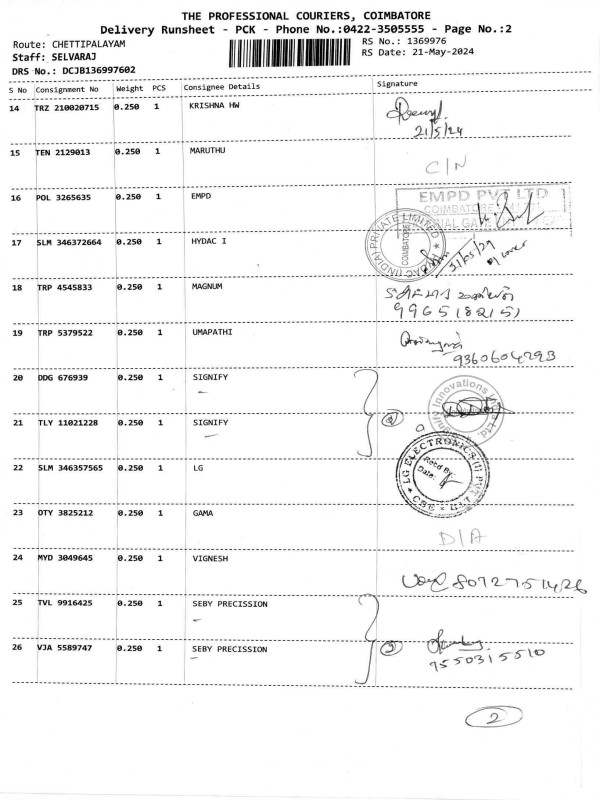 THE PROFESSIONAL COURIERS, COIMBATORE
Delivery Runsheet - PCK - Phone No.:0422-3505555 - Page No.:2
Route: CHETTIPALAYAM
RS No.: 1369976
Staff: SELVARAJ
RS Date: 21-May-2024
DRS No.: DCJB136997602
S No Consignment No Weight PCS Consignee Details Signature
14 TRZ 210020715 0.250 1 KRISHNA HW
21/5/24
15 TEN 2129013 0.250 1 MARUTHU
C/N
16 POL 3265635 0.250 1 EMPD
EMPD PVT LTD
COIMBATORE
17 SLM 346372664 0.250 1 HYDAC I
HYDAC (INDIA) PRIVATE LIMITED
COIMBATORE
18 TRP 4545833 0.250 1 MAGNUM
9965182151
19 TRP 5379522 0.250 1 UMAPATHI
9360604293
20 DDG 676939 0.250 1 SIGNIFY
Innovations
21 TLY 11021228 0.250 1 SIGNIFY
22 SLM 346357565 0.250 1 LG
LG ELECTRONICS (I) PVT
Recd By
Date:
CBE
23 OTY 3825212 0.250 1 GAMA
D/A
24 MYD 3049645 0.250 1 VIGNESH
8072751426
25 TVL 9916425 0.250 1 SEBY PRECISSION
26 VJA 5589747 0.250 1 SEBY PRECISSION
9550315510
2